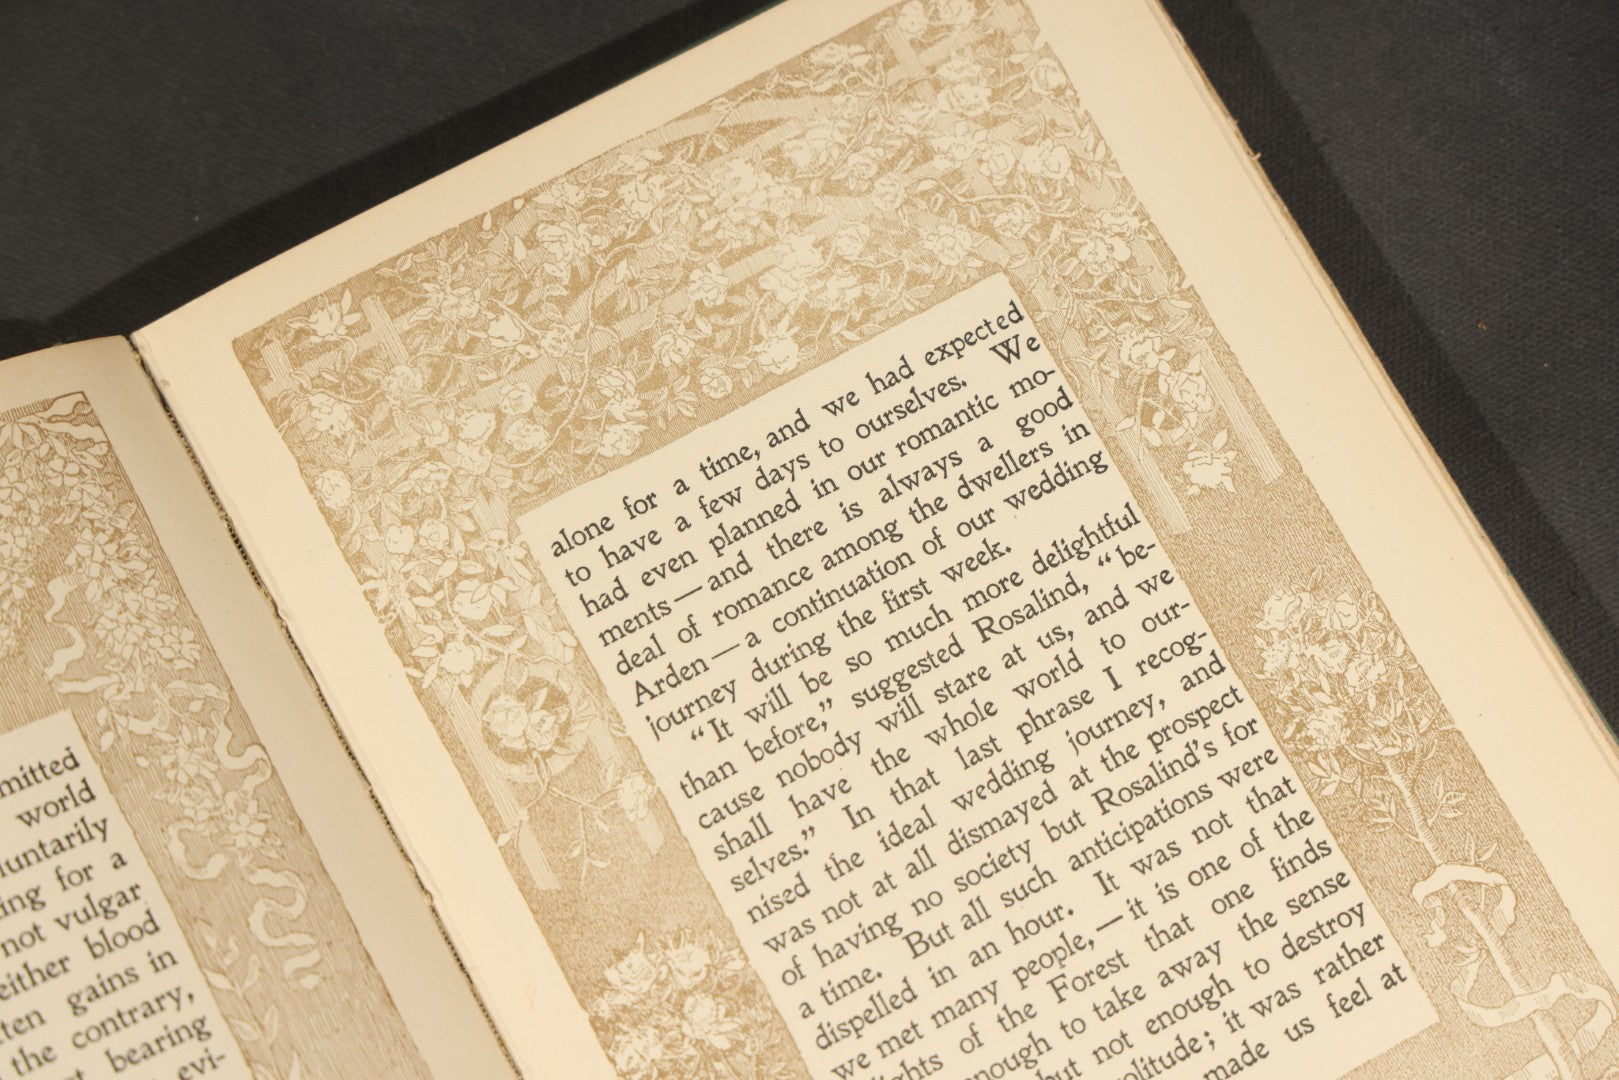 mitted
world
luntarily
ing for a
not vulgar
either blood
ten gains in
the contrary,
bearing
evi-
alone for a time, and we had expected
to have a few days to ourselves. We
had even planned in our romantic mo-
ments—and there is always a good
deal of romance among the dwellers in
Arden—a continuation of our wedding
journey during the first week.
“It will be so much more delightful
than before,” suggested Rosalind, “be-
cause nobody will stare at us, and we
shall have the whole world to our-
selves.” In that last phrase I recog-
nised the ideal wedding journey, and
was not at all dismayed at the prospect
of having no society but Rosalind's for
a time. But all such anticipations were
dispelled in an hour. It was not that
we met many people,—it is one of the
ights of the Forest that one finds
nough to take away the sense
but not enough to destroy
olitude; it was rather
made us feel at